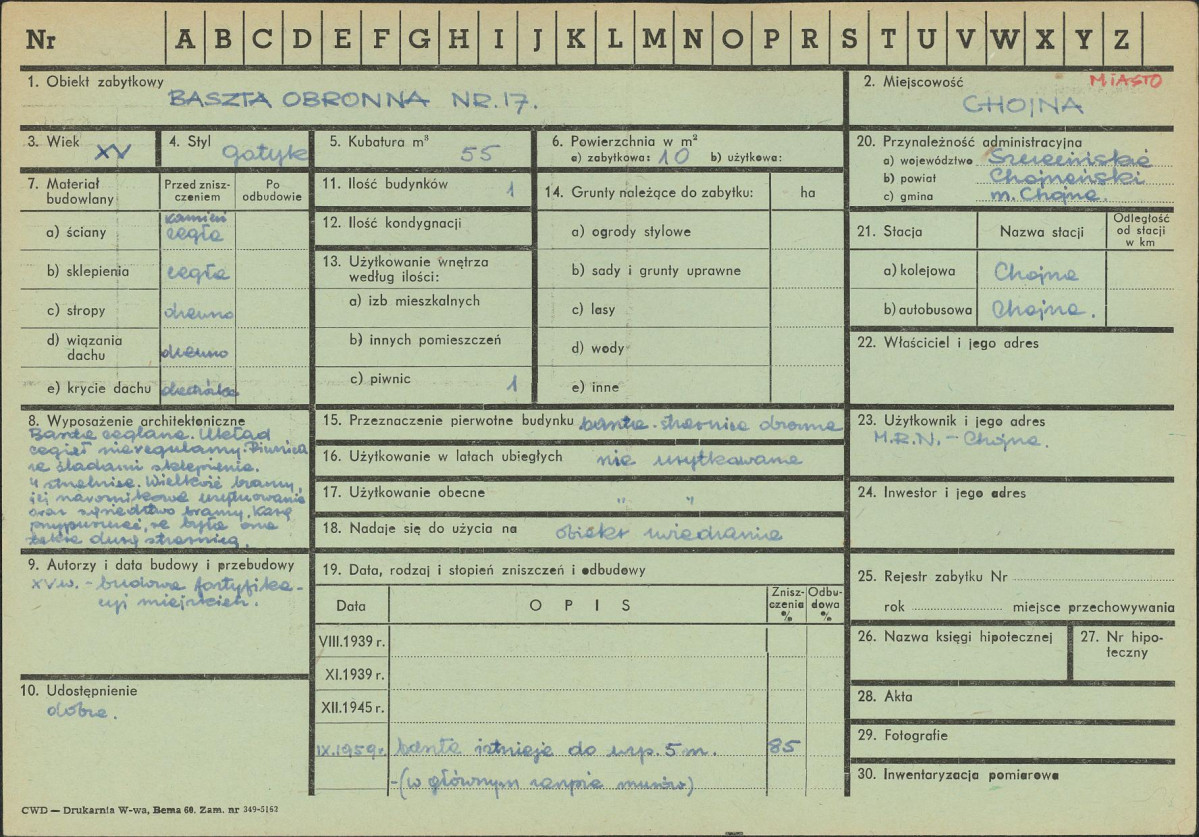 Nr A B C D E F G H I J K L M N O P R S T U V W X Y Z
1. Obiekt zabytkowy
BASZTA OBRONNA NR.17.
2. Miejscowość MIASTO
CHOJNA
3. Wiek XV
4. Styl gotyk
5. Kubatura m³ 55
6. Powierzchnia w m²
a) zabytkowa: 10 b) użytkowa:
7. Materiał budowlany
Przed zniszczeniem
Po odbudowie
a) ściany kamień cegła
b) sklepienia cegła
c) stropy drewno
d) wiązania dachu drewno
e) krycie dachu dachówka
8. Wyposażenie architektoniczne
Baszta ceglana. Układ
cegieł nieregularny. Piwnica
ze śladami sklepienia.
4 strzelnice. Wielkość bramy,
jej narożnikowe usytuowanie
oraz sąsiedztwo bramy, każą
przypuszczać, że była ona
także dużą strażnicą.
9. Autorzy i data budowy i przebudowy
XV w. - budowa fortyfika-
cji miejskich.
10. Udostępnienie
dobre.
11. Ilość budynków 1
12. Ilość kondygnacji
13. Użytkowanie wnętrza
według ilości:
a) izb mieszkalnych
b) innych pomieszczeń
c) piwnic 1
14. Grunty należące do zabytku: ha
a) ogrody stylowe
b) sady i grunty uprawne
c) lasy
d) wody
e) inne
15. Przeznaczenie pierwotne budynku baszta-strażnica obronna
16. Użytkowanie w latach ubiegłych nie użytkowana
17. Użytkowanie obecne " "
18. Nadaje się do użycia na obiekt zwiedzania
19. Data, rodzaj i stopień zniszczeń i odbudowy
Data OPIS Zniszczenia % Odbudowa %
VIII.1939 r.
XI.1939 r.
XII.1945 r.
IX.1959r. baszta istnieje do wys. 5 m. 85
-(w głównym zarysie murów)
20. Przynależność administracyjna
a) województwo Szczecińskie
b) powiat Chojneński
c) gmina m. Chojna.
21. Stacja Nazwa stacji Odległość od stacji w km
a) kolejowa Chojna
b) autobusowa Chojna.
22. Właściciel i jego adres
23. Użytkownik i jego adres
M.R.N. - Chojna.
24. Inwestor i jego adres
25. Rejestr zabytku Nr
rok miejsce przechowywania
26. Nazwa księgi hipotecznej
27. Nr hipoteczny
28. Akta
29. Fotografie
30. Inwentaryzacja pomiarowa
CWD — Drukarnia W-wa, Bema 60. Zam. nr 349-5162